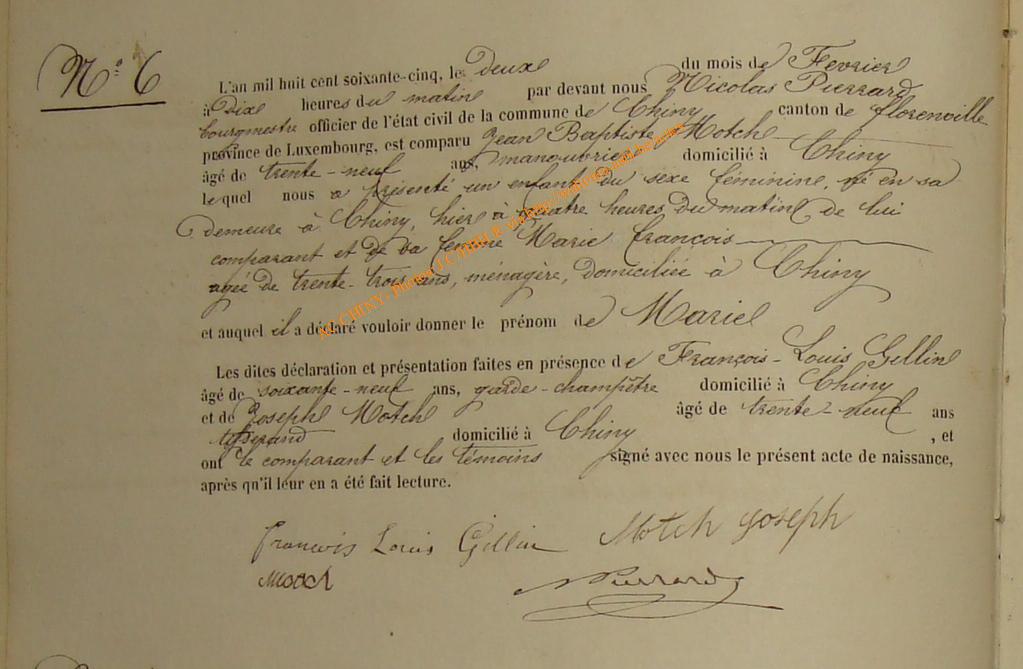 N° 6
L'an mil huit cent soixante-cinq, le deux du mois de Fevrier
à Dix heures du matin par devant nous Nicolas Pierrard
bourgmestre officier de l'état civil de la commune de Chiny canton de florenville
province de Luxembourg, est comparu Jean Baptiste Motch
âgé de trente-neuf ans, manouvrier domicilié à Chiny
lequel nous a présenté un enfant du sexe féminine, né en sa
demeure à Chiny, hier à quatre heures du matin de lui
comparant et de sa femme Marie françois
agée de trente-trois ans, ménagère, domiciliée à Chiny
et auquel il a déclaré vouloir donner le prénom de Marie
Les dites déclaration et présentation faites en présence de François-Louis Gillin
âgé de soixante-neuf ans, garde-champêtre domicilié à Chiny
et de Joseph Motch âgé de trente-neuf ans
tisserand domicilié à Chiny, et
ont le comparant et les témoins signé avec nous le présent acte de naissance,
après qu'il leur en a été fait lecture.
francois Louis Gillin Motch joseph
Motch NPierrard